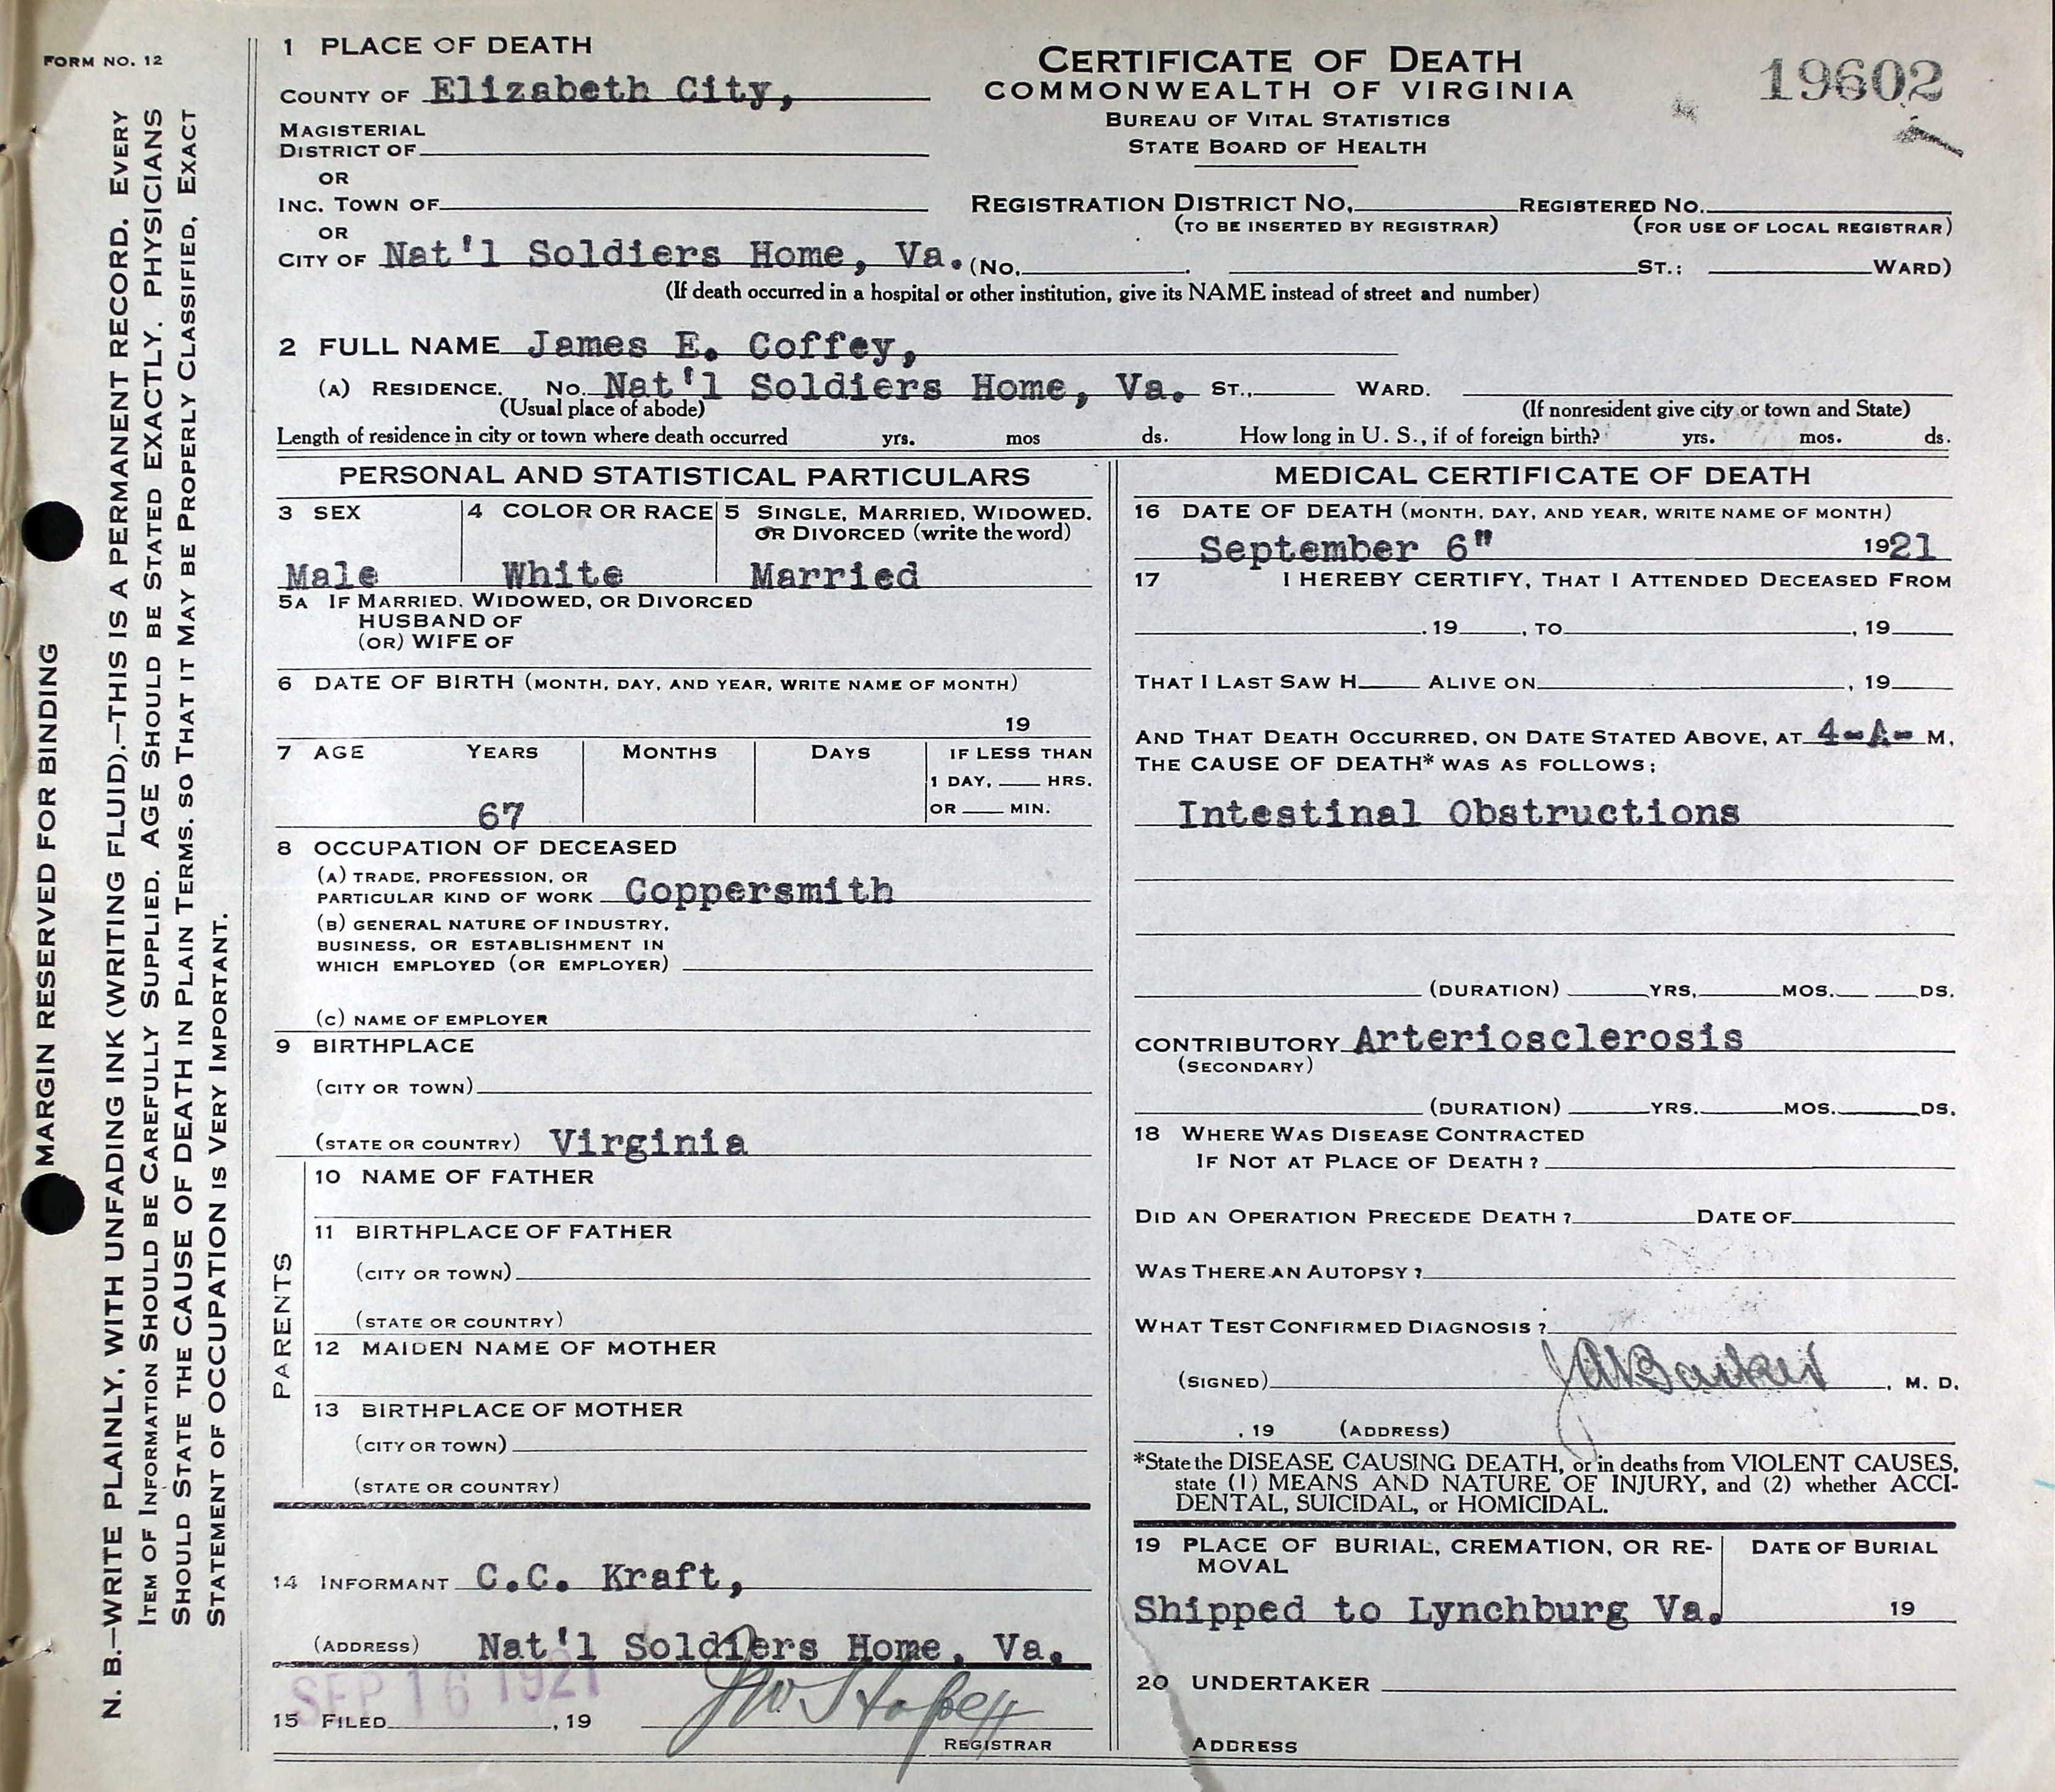 FORM NO. 12
MARGIN RESERVED FOR BINDING
N. B.—WRITE PLAINLY, WITH UNFADING INK (WRITING FLUID).—THIS IS A PERMANENT RECORD. EVERY
ITEM OF INFORMATION SHOULD BE CAREFULLY SUPPLIED. AGE SHOULD BE STATED EXACTLY. PHYSICIANS
SHOULD STATE THE CAUSE OF DEATH IN PLAIN TERMS. SO THAT IT MAY BE PROPERLY CLASSIFIED, EXACT
STATEMENT OF OCCUPATION IS VERY IMPORTANT.
1 PLACE OF DEATH
COUNTY OF Elizabeth City,
MAGISTERIAL
DISTRICT OF
OR
INC. TOWN OF
OR
CITY OF Nat'l Soldiers Home, Va. (NO. ST.; WARD)
CERTIFICATE OF DEATH
COMMONWEALTH OF VIRGINIA
BUREAU OF VITAL STATISTICS
STATE BOARD OF HEALTH
19602
REGISTRATION DISTRICT NO. REGISTERED NO.
(TO BE INSERTED BY REGISTRAR) (FOR USE OF LOCAL REGISTRAR)
(If death occurred in a hospital or other institution, give its NAME instead of street and number)
2 FULL NAME James E. Coffey,
(A) RESIDENCE. NO. Nat'l Soldiers Home, Va. ST., WARD.
(Usual place of abode) (If nonresident give city or town and State)
Length of residence in city or town where death occurred yrs. mos ds. How long in U. S., if of foreign birth? yrs. mos. ds.
PERSONAL AND STATISTICAL PARTICULARS
3 SEX 4 COLOR OR RACE 5 SINGLE, MARRIED, WIDOWED,
OR DIVORCED (write the word)
Male White Married
5A IF MARRIED, WIDOWED, OR DIVORCED
HUSBAND OF
(OR) WIFE OF
6 DATE OF BIRTH (MONTH, DAY, AND YEAR, WRITE NAME OF MONTH)
19
7 AGE YEARS MONTHS DAYS IF LESS THAN
1 DAY, HRS.
67 OR MIN.
8 OCCUPATION OF DECEASED
(A) TRADE, PROFESSION, OR
PARTICULAR KIND OF WORK Coppersmith
(B) GENERAL NATURE OF INDUSTRY,
BUSINESS, OR ESTABLISHMENT IN
WHICH EMPLOYED (OR EMPLOYER)
(C) NAME OF EMPLOYER
9 BIRTHPLACE
(CITY OR TOWN)
(STATE OR COUNTRY) Virginia
PARENTS
10 NAME OF FATHER
11 BIRTHPLACE OF FATHER
(CITY OR TOWN)
(STATE OR COUNTRY)
12 MAIDEN NAME OF MOTHER
13 BIRTHPLACE OF MOTHER
(CITY OR TOWN)
(STATE OR COUNTRY)
14 INFORMANT C.C. Kraft,
(ADDRESS) Nat'l Soldiers Home, Va.
SEP 16 1921
15 FILED , 19
REGISTRAR
MEDICAL CERTIFICATE OF DEATH
16 DATE OF DEATH (MONTH, DAY, AND YEAR, WRITE NAME OF MONTH)
September 6" 1921
17 I HEREBY CERTIFY, THAT I ATTENDED DECEASED FROM
, 19 , TO , 19
THAT I LAST SAW H ALIVE ON , 19
AND THAT DEATH OCCURRED, ON DATE STATED ABOVE, AT 4-A- M.
THE CAUSE OF DEATH* WAS AS FOLLOWS:
Intestinal Obstructions
(DURATION) YRS. MOS. DS.
CONTRIBUTORY Arteriosclerosis
(SECONDARY)
(DURATION) YRS. MOS. DS.
18 WHERE WAS DISEASE CONTRACTED
IF NOT AT PLACE OF DEATH?
DID AN OPERATION PRECEDE DEATH? DATE OF
WAS THERE AN AUTOPSY?
WHAT TEST CONFIRMED DIAGNOSIS?
(SIGNED) , M. D.
, 19 (ADDRESS)
*State the DISEASE CAUSING DEATH, or in deaths from VIOLENT CAUSES,
state (1) MEANS AND NATURE OF INJURY, and (2) whether ACCI-
DENTAL, SUICIDAL, or HOMICIDAL.
19 PLACE OF BURIAL, CREMATION, OR RE-
MOVAL
DATE OF BURIAL
Shipped to Lynchburg Va. 19
20 UNDERTAKER
ADDRESS